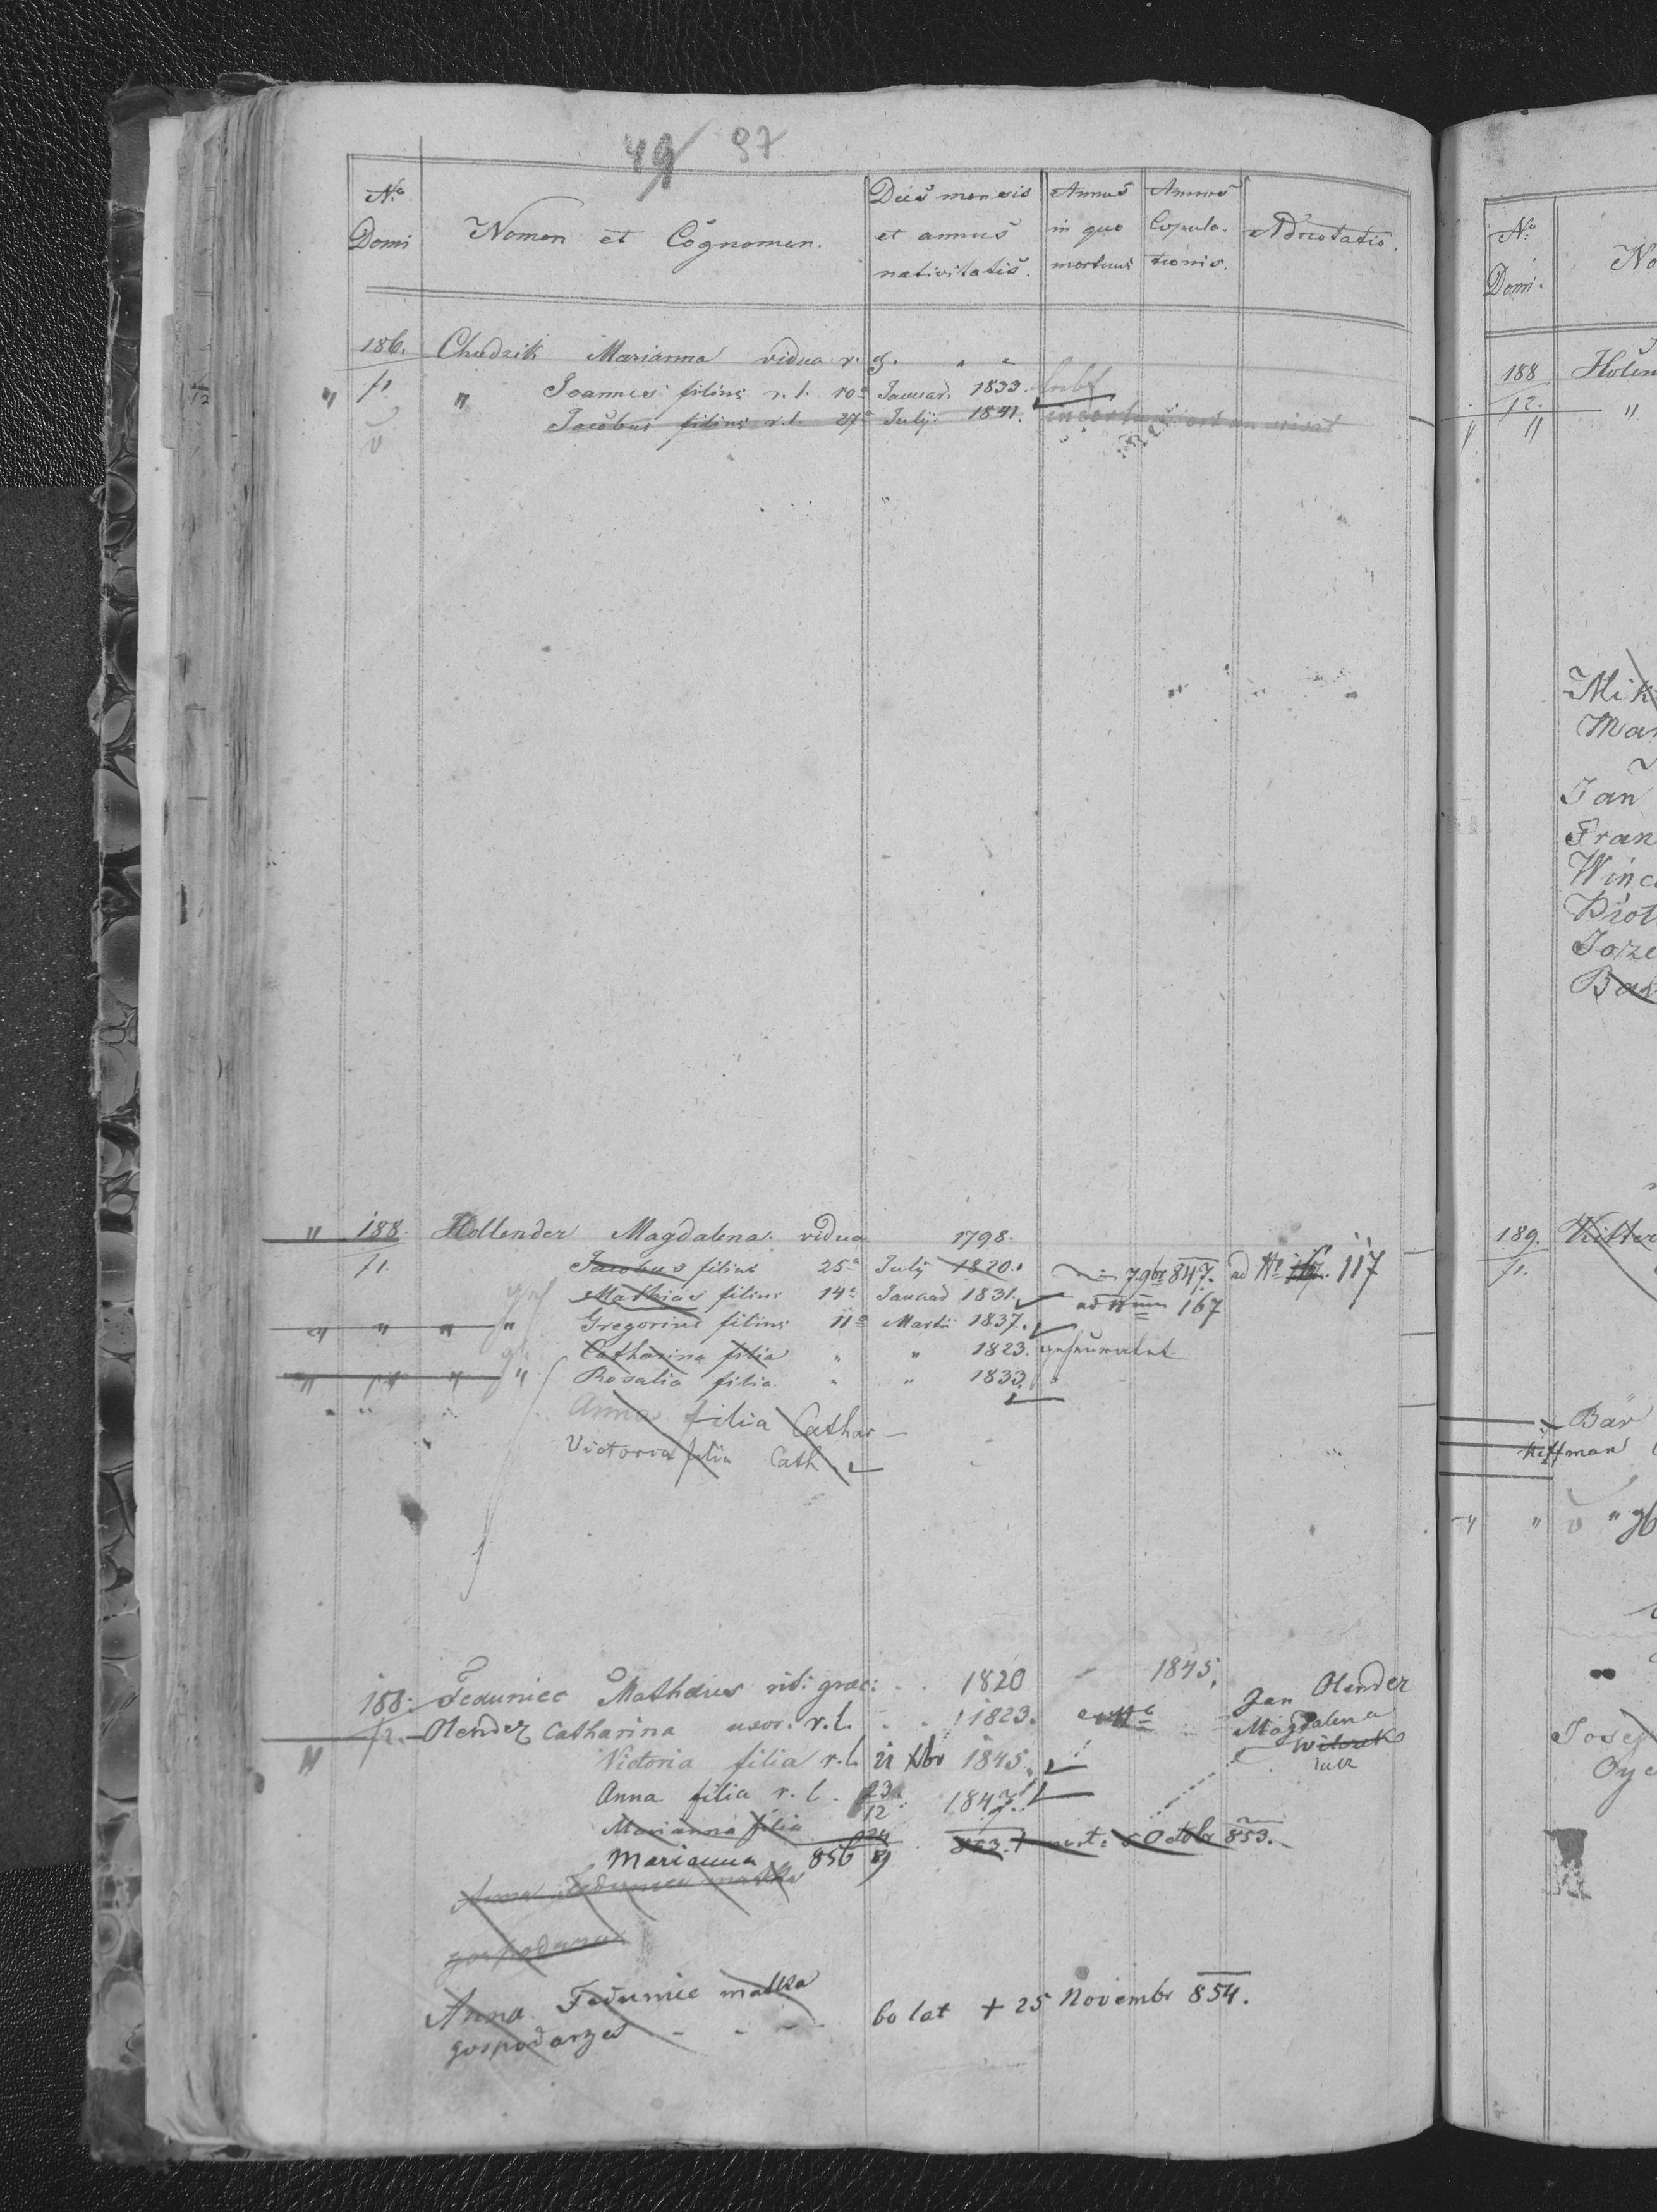 49 97
No Domi
Nomen et Cognomen.
Dies mensis et annus nativitatis.
Annus in quo mortuus
Annus Copulationis.
Adnotatio.
186. Chudzik Marianna vidua r. g. " "
" /1 " Joannes filius r. l. 10a Januar. 1833.
Jacobus filius r. l. 27a Julÿ 1841. incertum est an vivat
" 188. Hollender Magdalena vidua 1798.
/1. Jacobus filius 25a Julÿ 1820. 7 9br 847. ad No 117
Mathias filius 14a Januar 1831. ad Num 167
" " " " Gregorius filius 11a Martii 1837.
Catharina filia " " 1823.
" " " " Rosalia filia " " 1833.
Anna filia Cathar
Victoria filia Cath
188. Feduniec Mathaeus rit: graec: . . 1820 1845.
/2. Olender Catharina uxor. r. l. . . 1823. Jan Olender Magdalena
" Victoria filia r. l. 21 Xbr 1845.
Anna filia r. l. 23/12 1847.
Marianna filia 24 853. Octobr 853.
Marianna 856 8/9
Anna Feduniec matka
gospodarza
Anna Feduniec matka
gospodarza - - - 60 lat + 25 Novembr 854.
No Domi.
No
188 Holen
/2. "
" "
Mik
Mar
Jan
Fran
Winc
Piot
Joze
Bar
189. Kitter
/1.
Bär
Kiffman
" "
Josef
Oyc